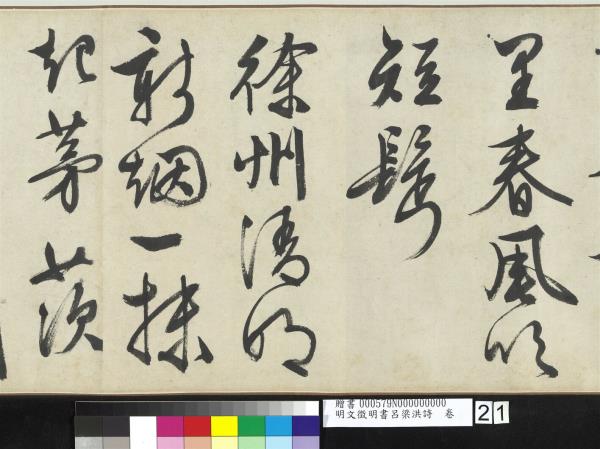 里春風吹
短鬢
徐州清明
新烟一抹
起茅茨
贈書 000579N000000000
明文徵明書呂梁洪詩 卷
21